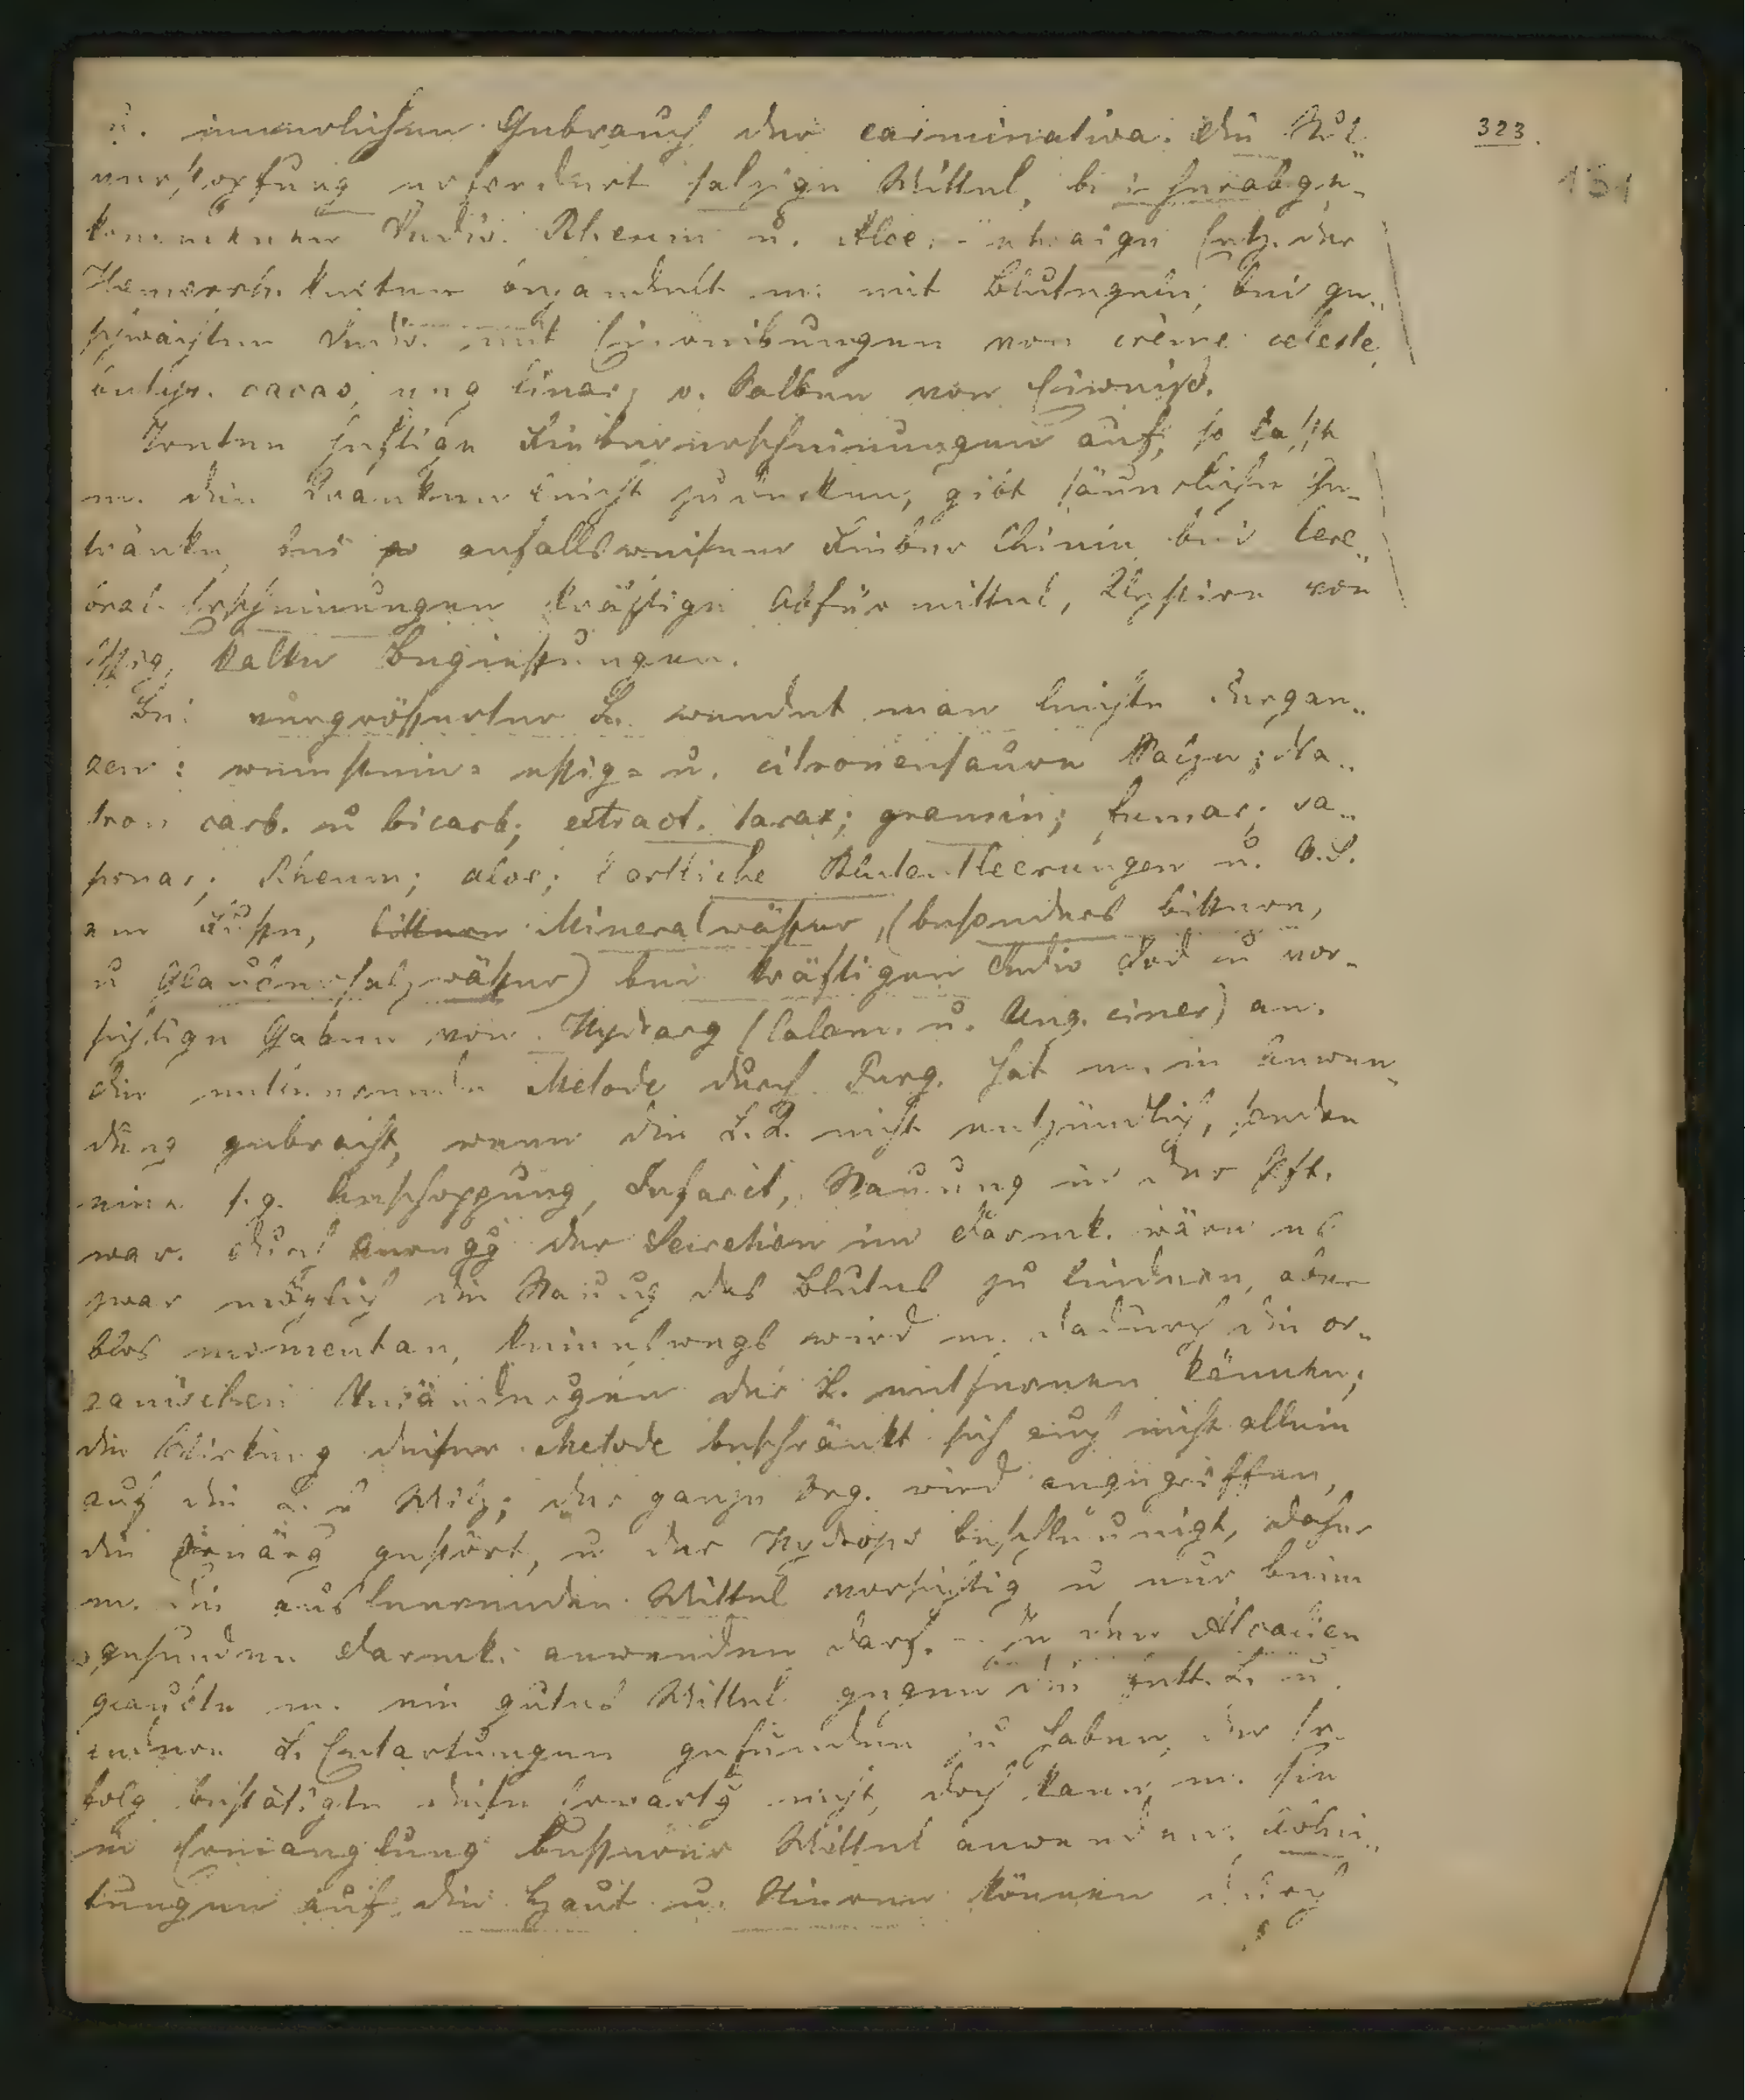 323.
151
u. innerlichen Gebrauch der carminativa. Die Stul„
verstopfung erfordert salzige Mittel, bei herabge„
kommenen Indiv. Rheum u. Aloe. - etwaige Entz. der
Hemorrh. knoten behandelt m. mit Blutegeln, bei ge„
schwächten Indiv. mit Einreibungen von crème celeste,
butyr. cacao, ung linar, o. Salben von Eiweiß.
Treten heftige Fiebererscheinungen auf, so lasse
m. den Kranken leicht zudecken, gibt säuerliche Ge„
tränke, bei anfallsweisem Fieber Chinin bei Cere„
bral Erscheinungen kräftige Abfürmittel, Klystire von
Essig, kalte Begießungen.
Bei vergrößerter L. wendet man leichte Purgan„
zen: weinstein= essig= u. citronensaure Salze; Na„
tron carb. u bicarb; extract. tarax; gramin; fumar; sa„
ponar; Rheum; aloe; oertliche Blutentleerungen u. B.S.
an Füßen, bittern Mineralwäßer, (besonders bittern,
u Glaubersalzwäßer) bei kräftigen Indiv Jod u vor-
sichtige Gaben von Hydrarg (Calom. u. Ung. ciner) an.
Die entleerende Metode durch Purg. hat m. in Anwen„
dung gebracht, wenn die L.K. nicht entzündlich, sondern
eine s.g. Anschoppung, Infarct, Stauung in der Pft.
war. Durch Anregg der Secretion im Darmk. wäre es
zwar möglich die Stauug des Blutes zu lindern, aber
blos momentan, keineswegs wird m. dadurch die or„
ganischen Veränderugen der L. entfernen können;
die Wirkung dieser Metode beschränkt sich auch nicht allein
auf die L. u Milz; der ganze Org. wird angegriffen,
die Ernärg gestört, u der Hydrops beschleunigt, daher
m. die ausleerenden Mittel vorsichtig u nur beim
gesunden Darmk. anwenden darf. - In den Alcalien
glaubte m. ein gutes Mittel gegen die Fett. L. u.
andern L. Entartungen gefunden zu haben, der Er„
folg bestätigte diese Erwartg nicht, doch kann m. sie
in Ermanglung beßerer Mittel anwenden. Ablei„
tungen auf die Haut u. Nieren können durch